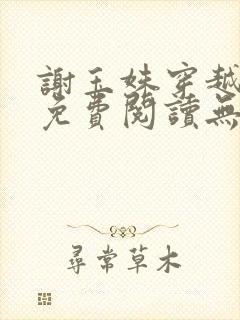 謝玉姝穿越
免費閱讀無
尋常草木